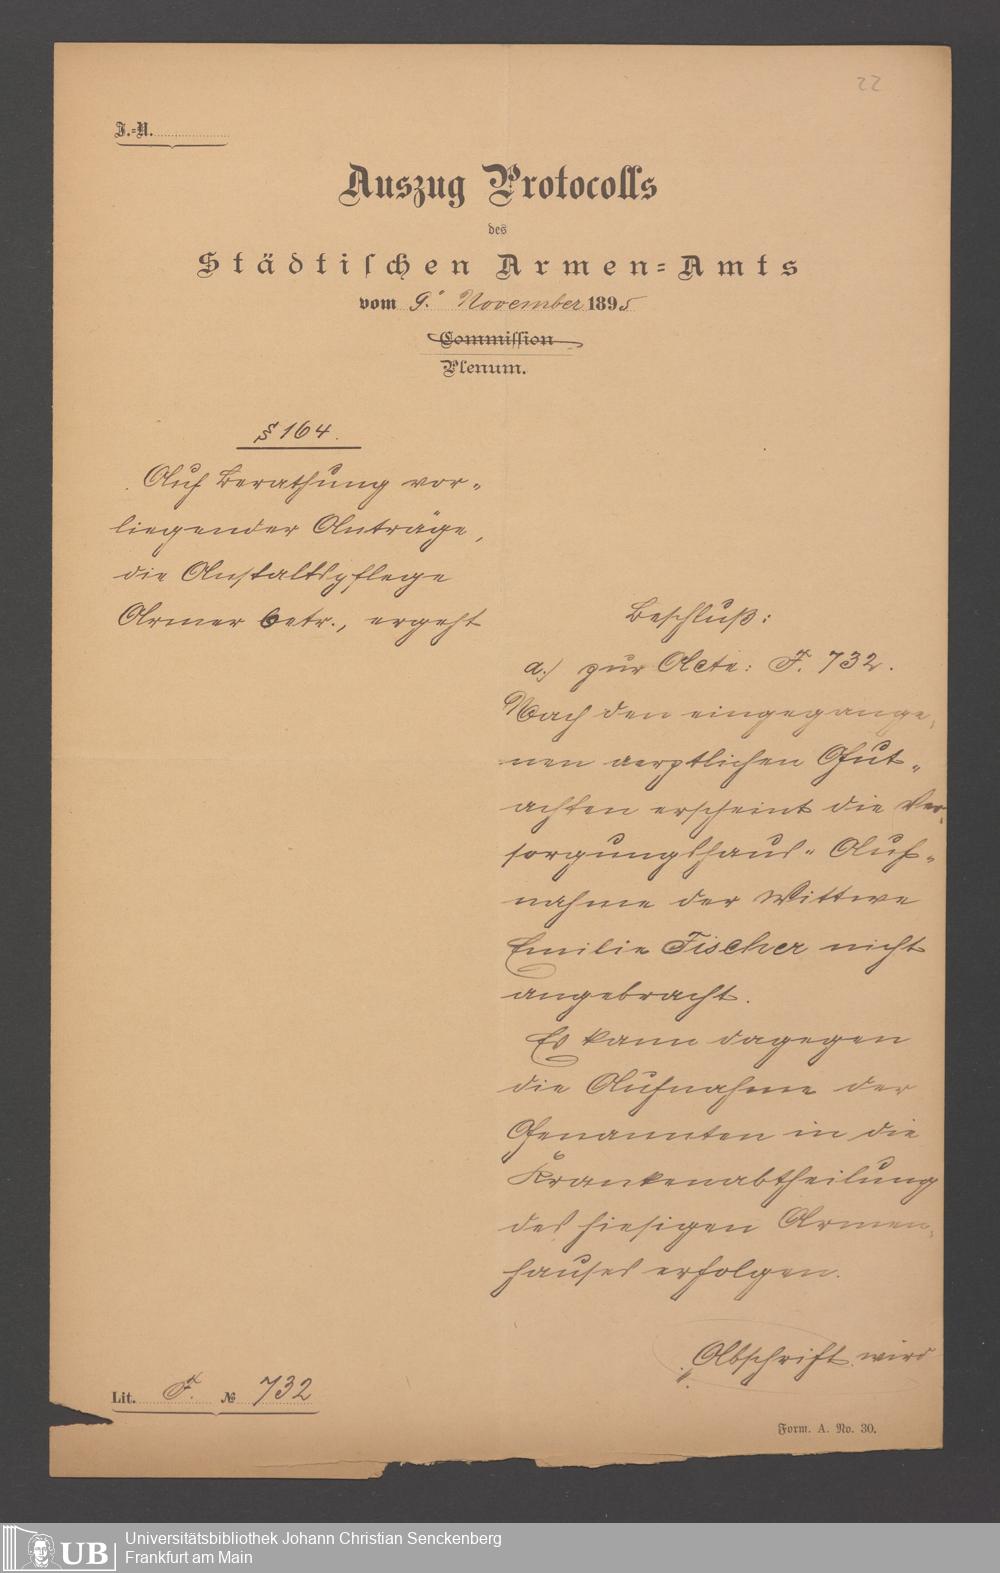 22
J.-N.
Auszug Protocolls
des
Städtischen Armen-Amts
vom 9. November 1895
Commission
Plenum.
§ 164.
Auf Berathung vor-
liegender Anträge,
die Anstaltspflege
Armer betr., ergeht
Beschluß:
a.) zur Acte: F. 732.
Nach den eingegange-
nen aerztlichen Gut-
achten erscheint die Ver-
sorgungshaus-Auf-
nahme der Wittwe
Emilie Fischer nicht
angebracht.
Es kann dagegen
die Aufnahme der
Genannten in die
Krankenabtheilung
des hiesigen Armen-
hauses erfolgen.
Abschrift wird
Lit. F. № 732
Form. A. No. 30.
UB
Universitätsbibliothek Johann Christian Senckenberg
Frankfurt am Main